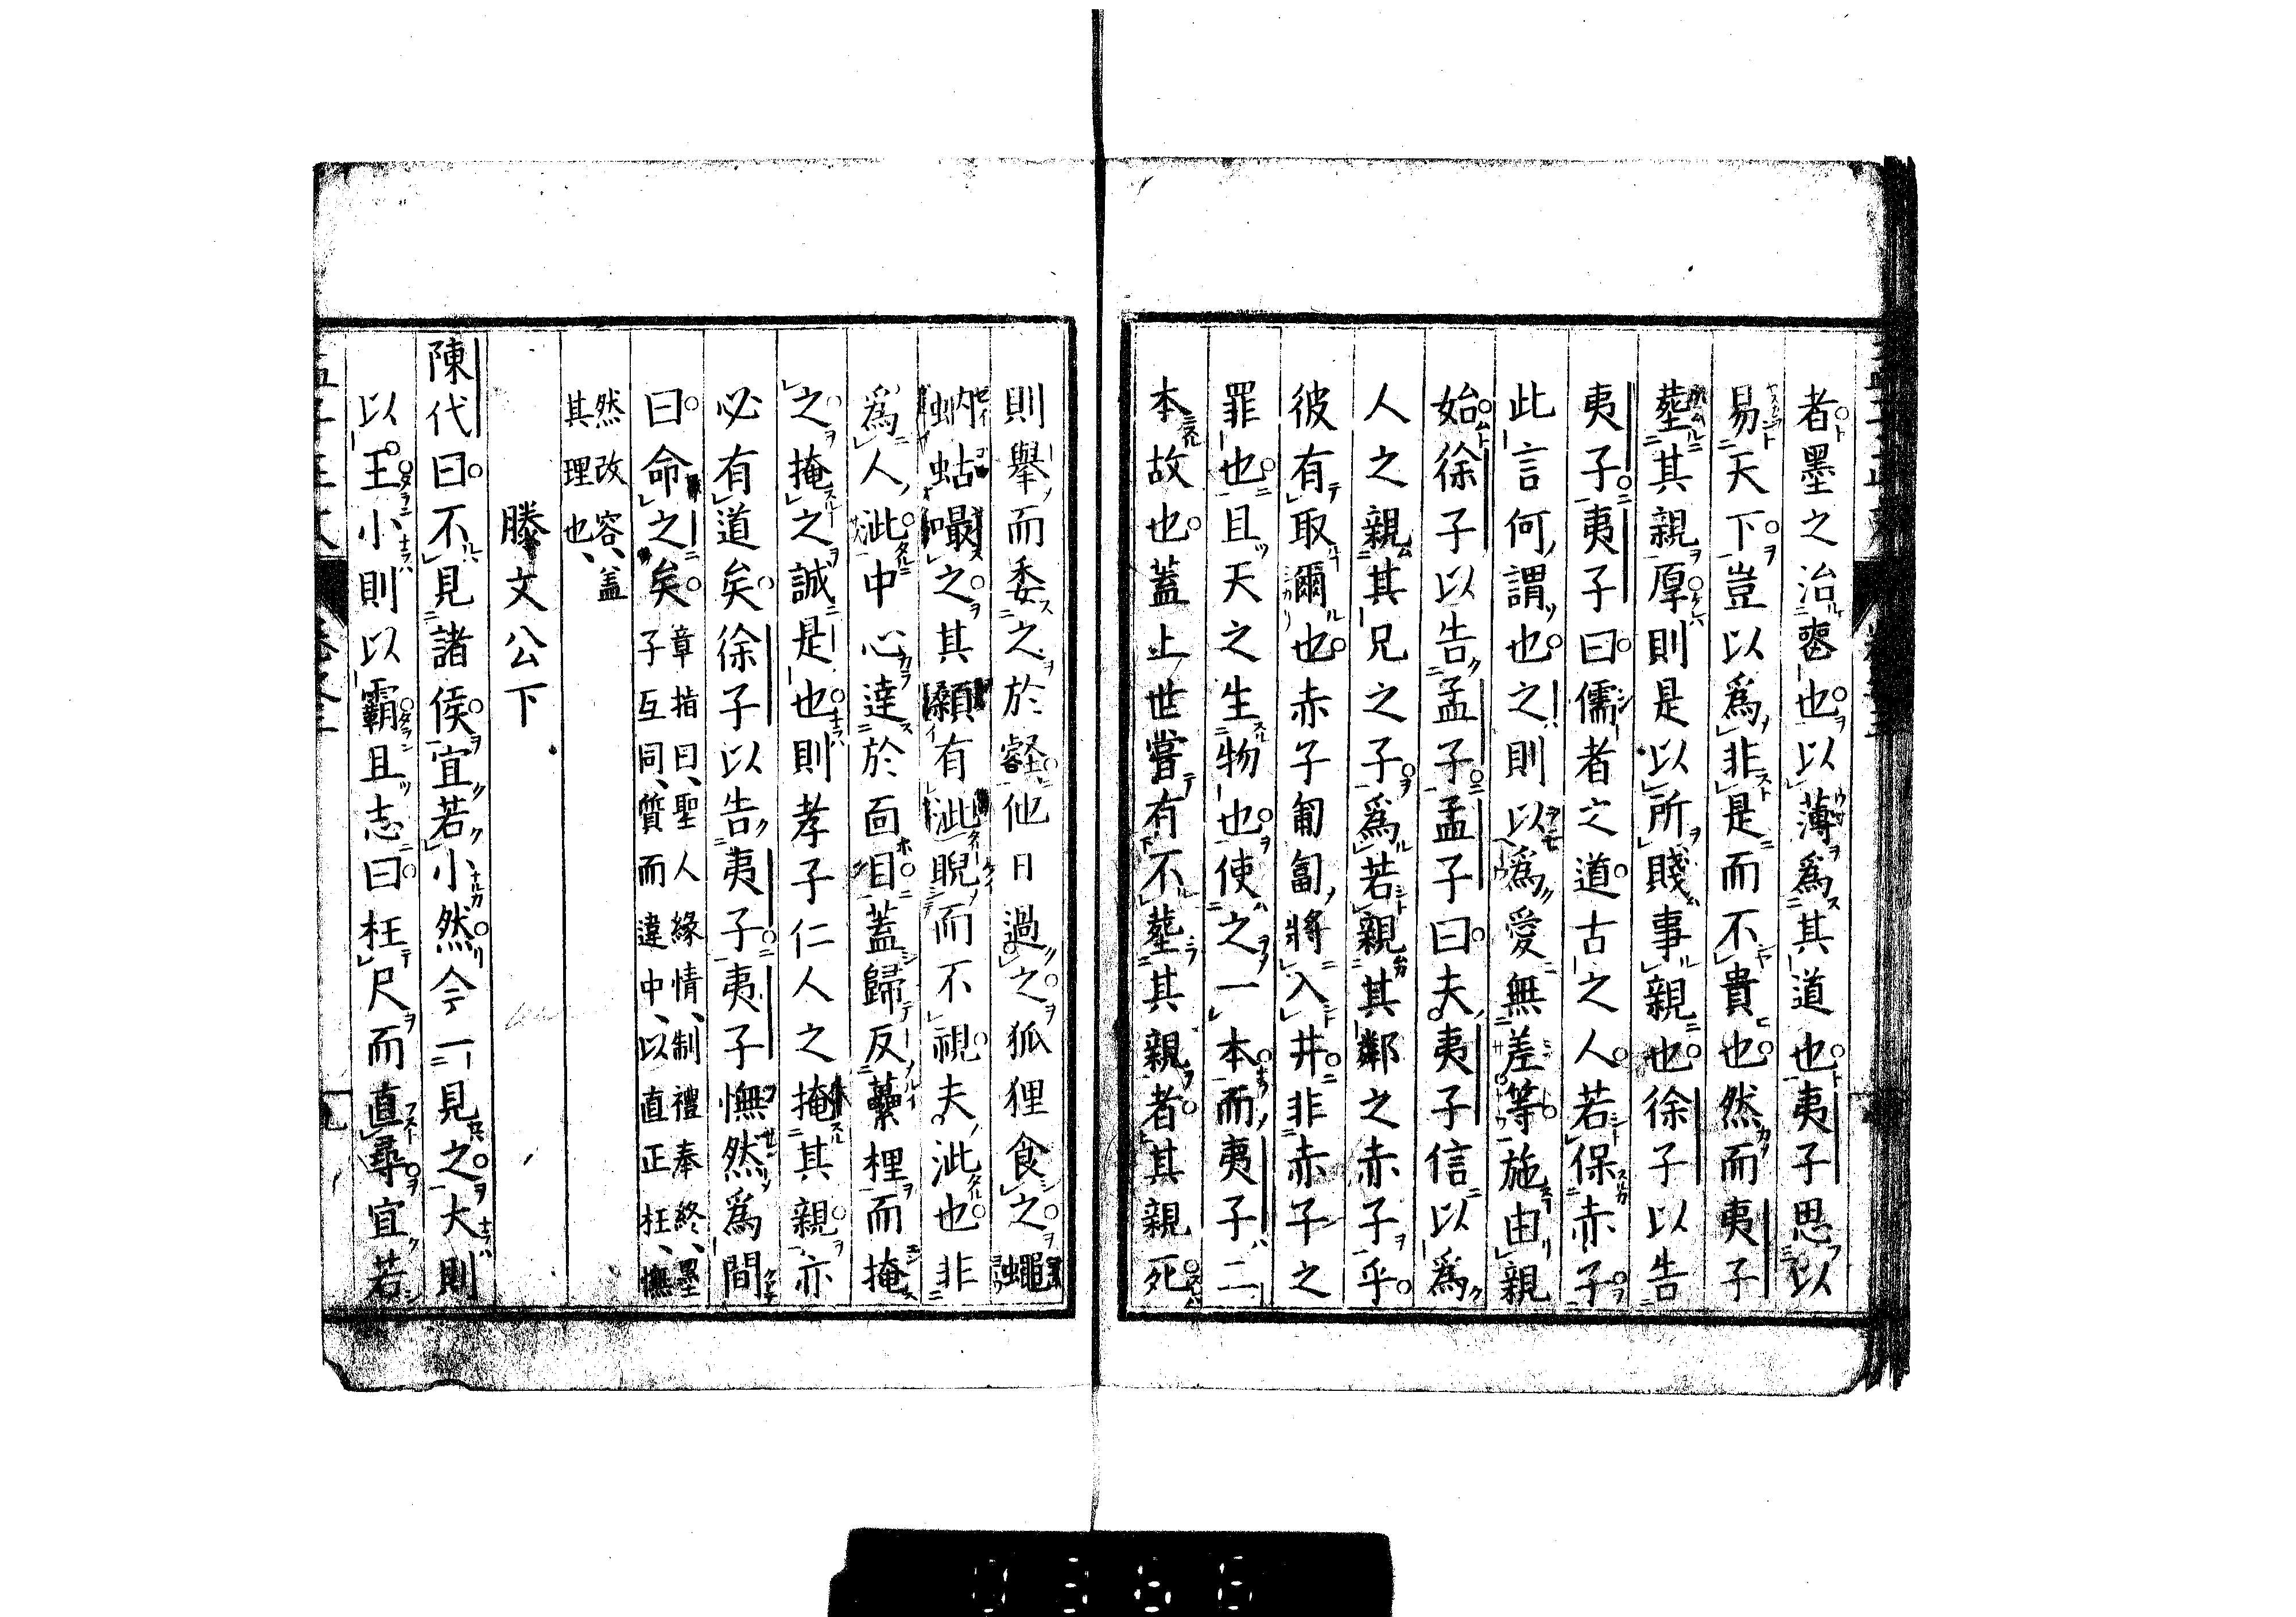 者墨之治喪也以薄爲其道也夷子思以
易天下豈以爲非是而不貴也然而夷子
葬其親厚則是以所賤事親也徐子以告
夷子夷子曰儒者之道古之人若保赤子
此言何謂也之則以爲愛無差等施由親
始徐子以告孟子孟子曰夫夷子信以爲
人之親其兄之子爲若親其鄰之赤子乎
彼有取爾也赤子匍匐將入井非赤子之
罪也且天之生物也使之一本而夷子二
本故也蓋上世嘗有不葬其親者其親死
則舉而委之於壑他日過之狐狸食之蠅
蚋蛄嘬之其顙有泚睨而不視夫泚也非
爲人泚中心達於面目蓋歸反虆梩而掩
之掩之誠是也則孝子仁人之掩其親亦
必有道矣徐子以告夷子夷子憮然爲間
曰命之矣
章指曰聖人緣情制禮奉終墨
子互同質而違中以直正枉憮
然改容蓋
其理也
滕文公下
陳代曰不見諸侯宜若小然今一見之大則
以王小則以霸且志曰枉尺而直尋宜若